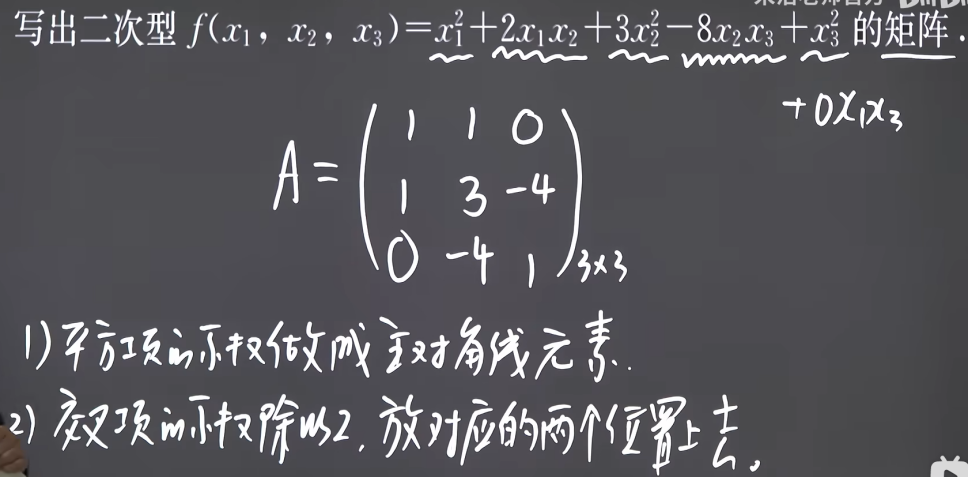 写出二次型 f(x₁, x₂, x₃)=x₁²+2x₁x₂+3x₂²-8x₂x₃+x₃² 的矩阵.
+0x₁x₃
A= ( 1 1 0
1 3 -4
0 -4 1 )₃ₓ₃
1)平方项的系数做成主对角线元素.
2)交叉项的系数除以2,放对应的两个位置上去。